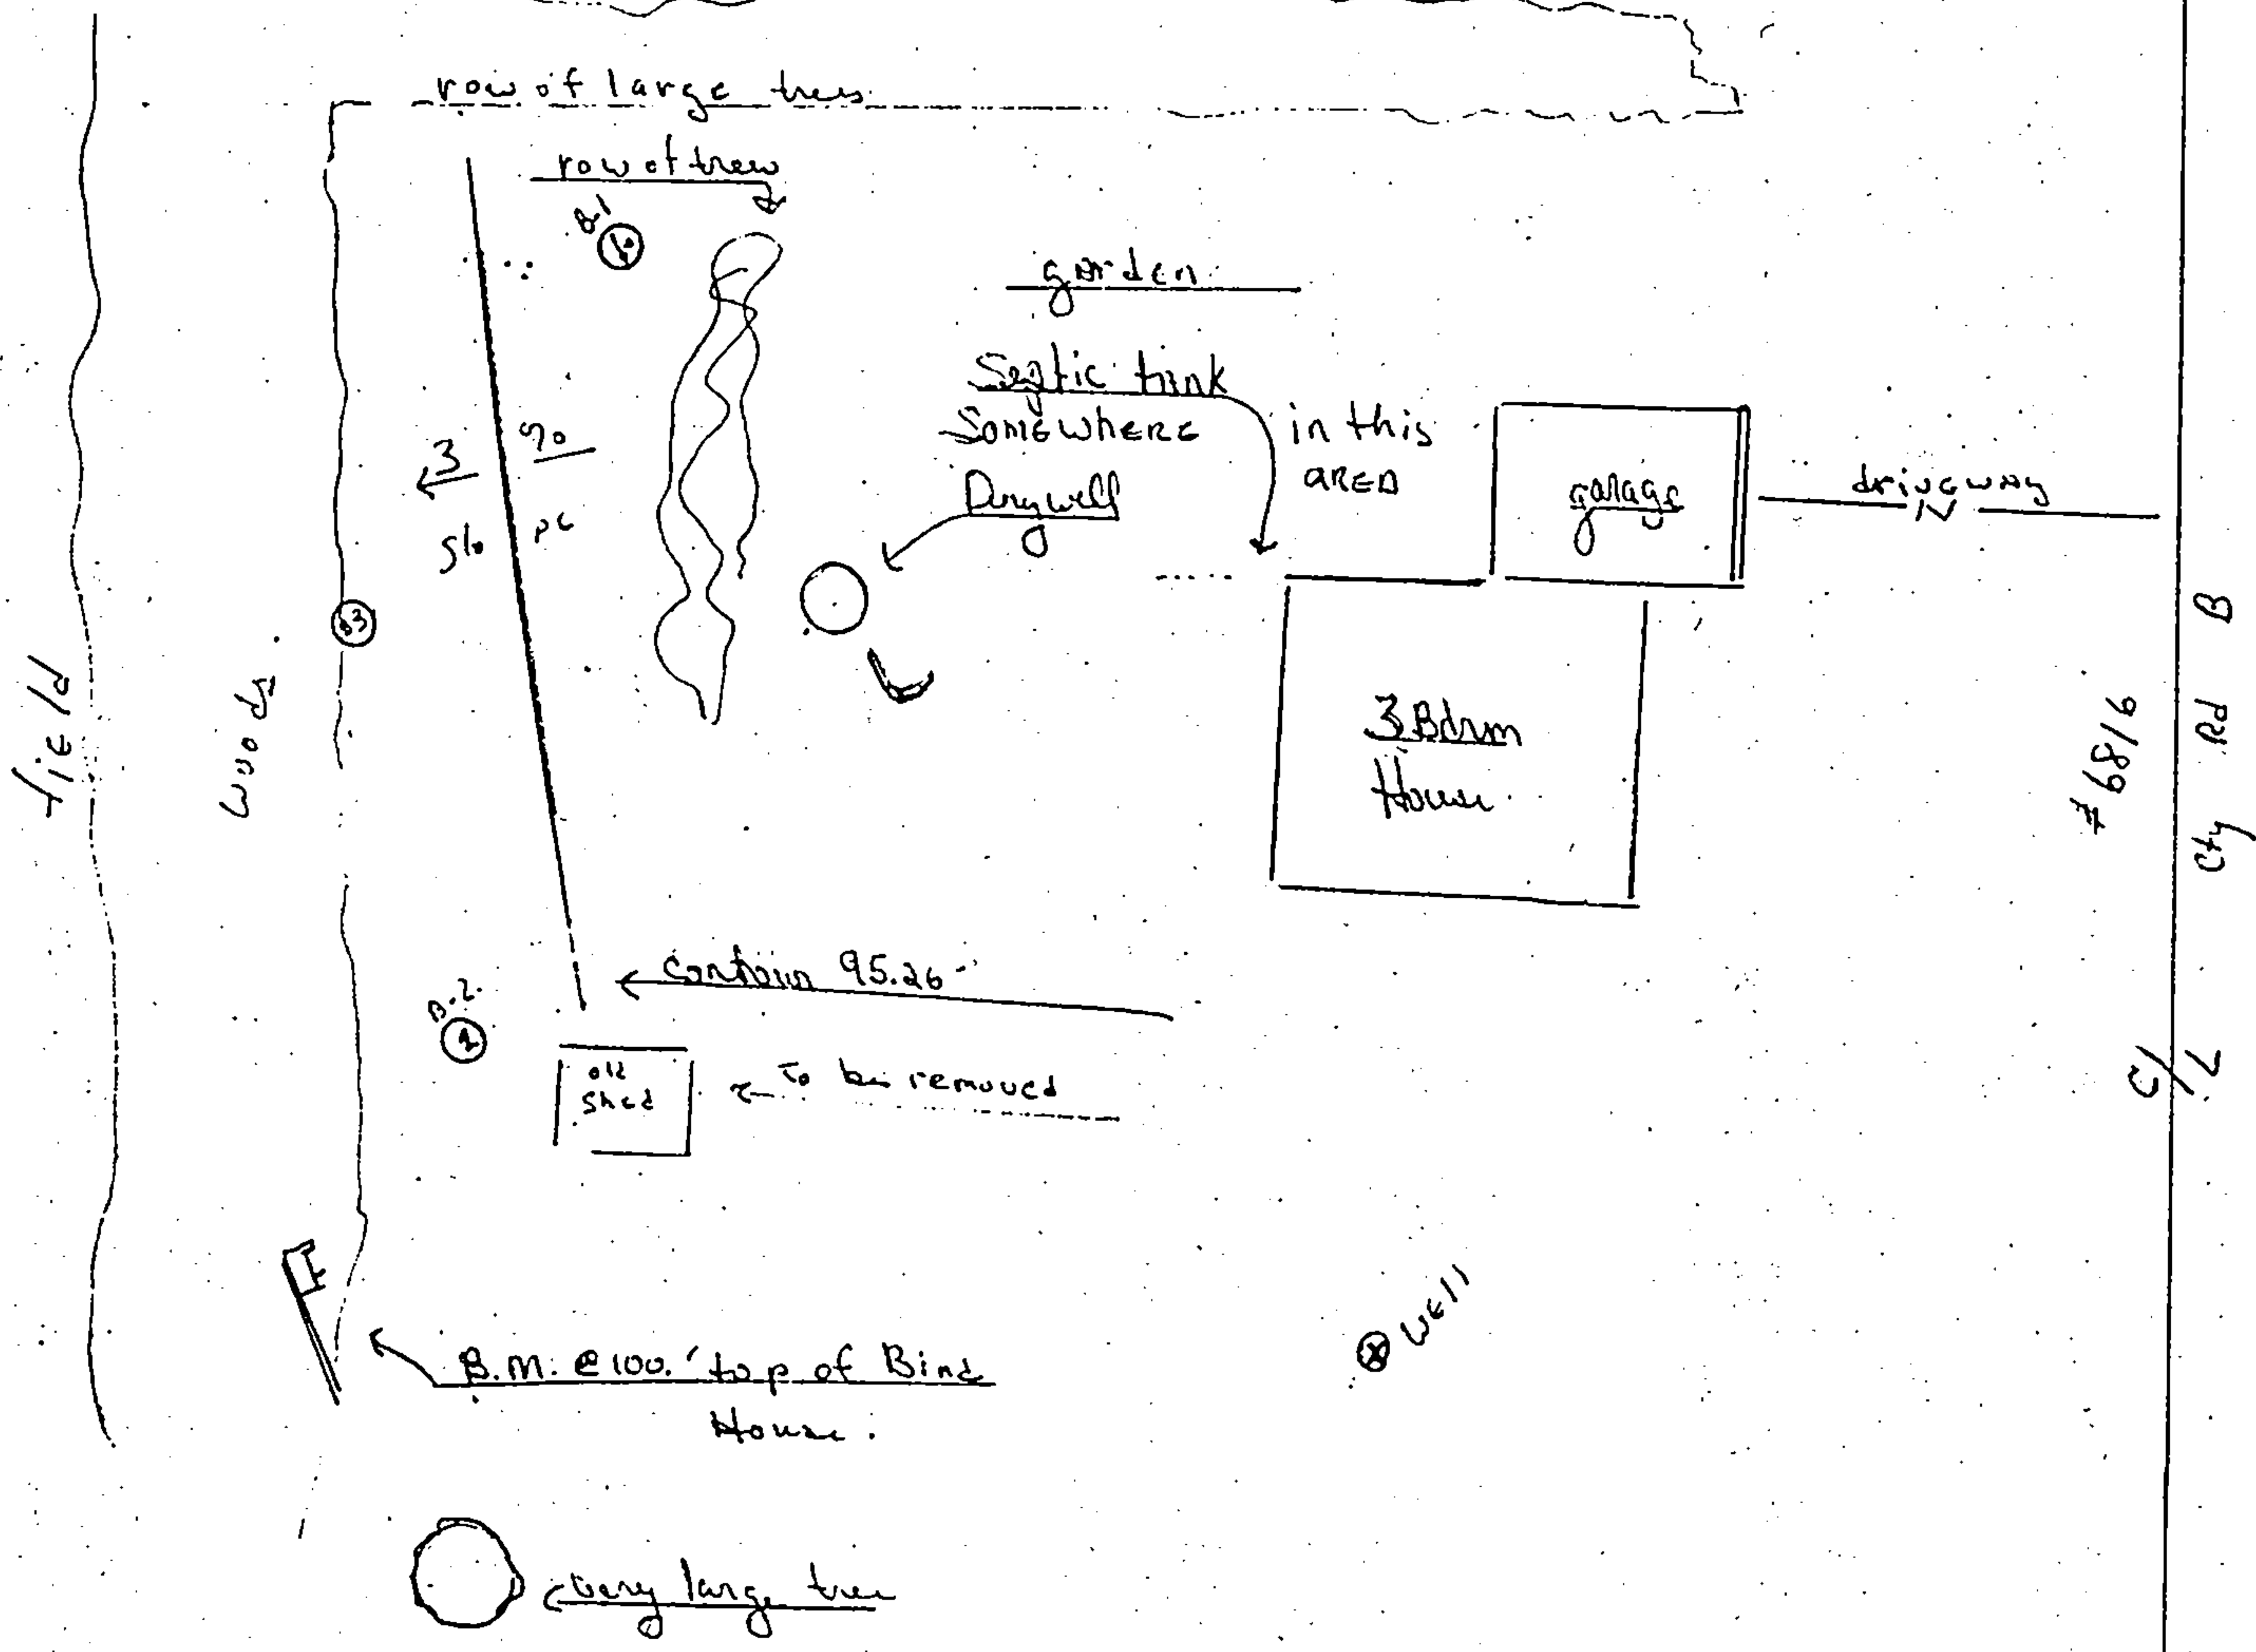 row of large trees
row of trees
B1
garden
Septic tank
Somewhere
in this
AREA
Drywell
garage
driveway
3 %
slope
B3
field
woods
3 Bdrm
House
#6816
Cty Rd B
C/L
contour 95.26
B.2.
2
old
shed
To be removed
Well
B.M. @ 100.' top of Bird
House.
very large tree